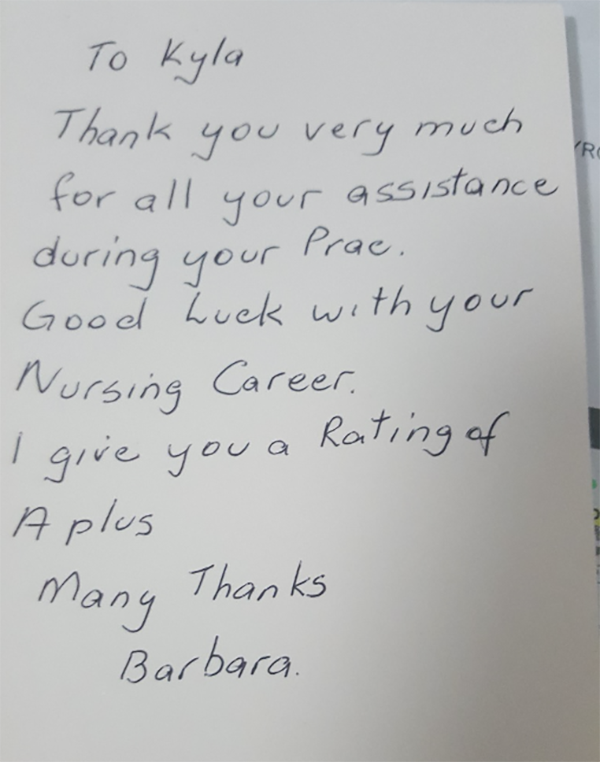 To Kyla
Thank you very much
for all your assistance
during your Prac.
Good Luck with your
Nursing Career.
I give you a Rating of
A plus
Many Thanks
Barbara.